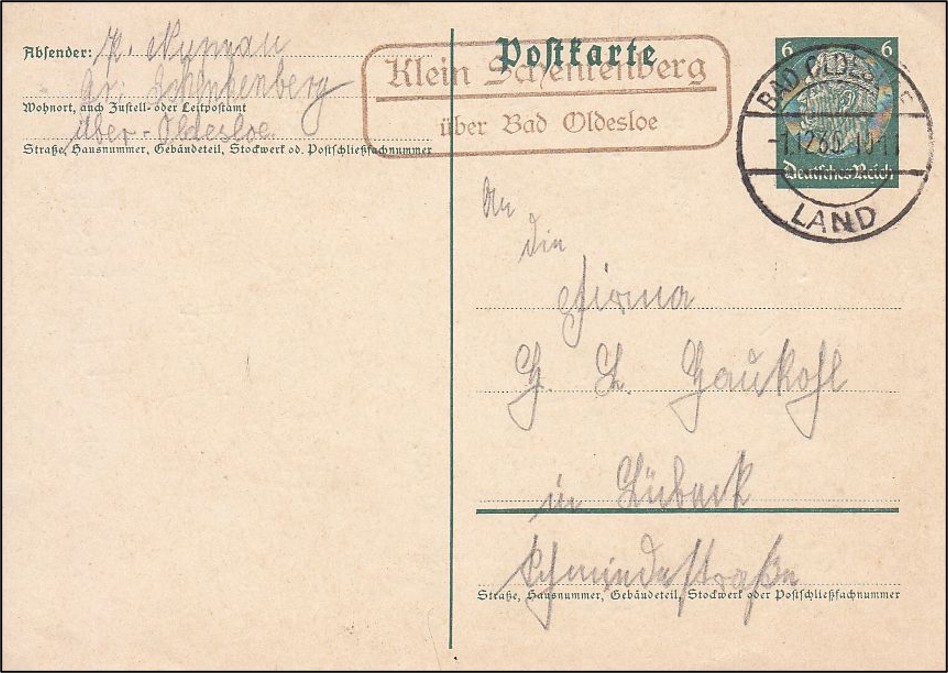 Postkarte
Absender: H.
Gr. Schenkenberg
Wohnort, auch Zustell- oder Leitpostamt
über-Oldesloe
Straße, Hausnummer, Gebäudeteil, Stockwerk od. Postschließfachnummer
Klein Schenkenberg
über Bad Oldesloe
6 6
Deutsches Reich
BAD OLDESLOE
LAND
An
die
Firma
in Lübeck
Straße, Hausnummer, Gebäudeteil, Stockwerk oder Postschließfachnummer